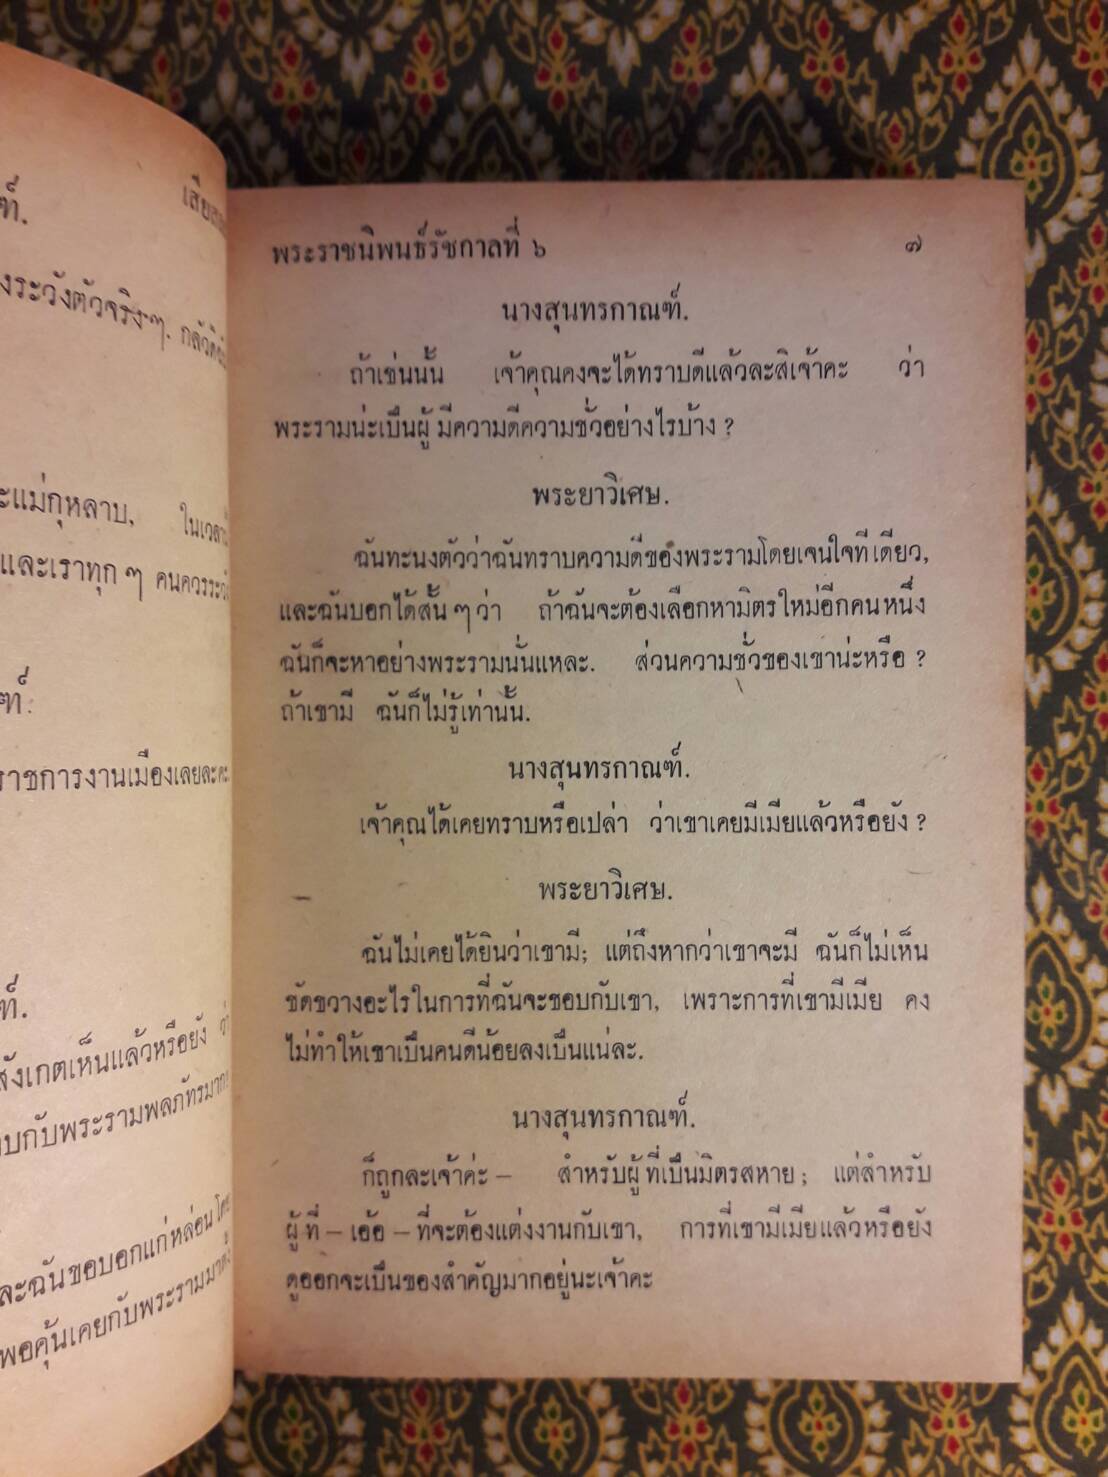 ฑ์.
เสียสละ
งระวังตัวจริง ๆ. กลัวดิฉัน
ะแม่กุหลาบ, ในเวลานี้
และเราทุก ๆ คนควรระวัง
ฑ์.
ราชการงานเมืองเลยละคะ
ฑ์.
สังเกตเห็นแล้วหรือยัง ว่า
บกับพระรามพลภัทรมาก
ละฉันขอบอกแก่หล่อนโดย
พอคุ้นเคยกับพระรามมาตั้ง
พระราชนิพนธ์รัชกาลที่ ๖ ๗
นางสุนทรกาณฑ์.
ถ้าเช่นนั้น เจ้าคุณคงจะได้ทราบดีแล้วละสิเจ้าคะ ว่า
พระรามน่ะเป็นผู้ มีความดีความชั่วอย่างไรบ้าง ?
พระยาวิเศษ.
ฉันทะนงตัวว่าฉันทราบความดีของพระรามโดยเจนใจทีเดียว,
และฉันบอกได้สั้น ๆ ว่า ถ้าฉันจะต้องเลือกหามิตรใหม่อีกคนหนึ่ง
ฉันก็จะหาอย่างพระรามนั่นแหละ. ส่วนความชั่วของเขาน่ะหรือ ?
ถ้าเขามี ฉันก็ไม่รู้เท่านั้น.
นางสุนทรกาณฑ์.
เจ้าคุณได้เคยทราบหรือเปล่า ว่าเขาเคยมีเมียแล้วหรือยัง ?
พระยาวิเศษ.
ฉันไม่เคยได้ยินว่าเขามี; แต่ถึงหากว่าเขาจะมี ฉันก็ไม่เห็น
ขัดขวางอะไรในการที่ฉันจะชอบกับเขา, เพราะการที่เขามีเมีย คง
ไม่ทำให้เขาเป็นคนดีน้อยลงเป็นแน่ละ.
นางสุนทรกาณฑ์.
ก็ถูกละเจ้าค่ะ – สำหรับผู้ที่เป็นมิตรสหาย ; แต่สำหรับ
ผู้ที่ – เอ้อ – ที่จะต้องแต่งงานกับเขา, การที่เขามีเมียแล้วหรือยัง
ดูออกจะเป็นของสำคัญมากอยู่นะเจ้าคะ